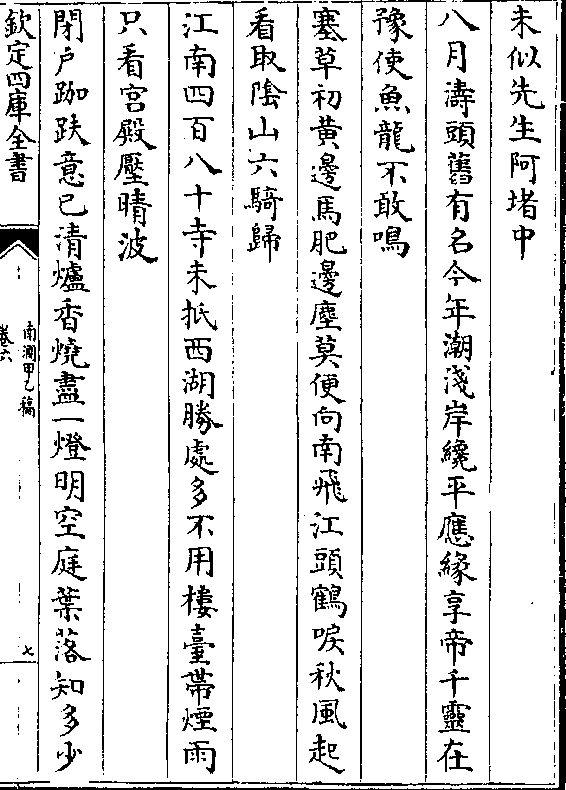 未似先生阿堵中
八月濤頭舊有名今年潮淺岸纔平應縁享帝千靈在
豫使魚龍不敢鳴
塞草初黄邊馬肥邊塵莫便向南飛江頭鶴唳秋風起
看取陰山六騎歸
江南四百八十寺未抵西湖勝處多不用樓臺帶煙雨
只看宫殿壓晴波
閉戸跏趺意已清爐香燒盡一燈明空庭葉落知多少
欽定四庫全書
南澗甲乙稿
卷六
七